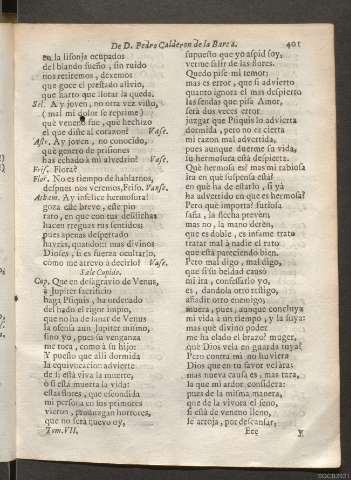 De D. Pedro Calderon de la Barca. 401
en la lisonja ocupados
del blando sueño, sin ruido
nos retiremos, dexemos
que goce el prestado alivio,
que harto que llorar la queda.
Sel. A y joven, no otra vez visto,
( mal mi dolor se reprime )
què veneno fue, què hechizo
el que diste al corazon? Vase.
Ast. A y joven, no conocido,
què genero de prisiones
has echado à mi alvedrio? Vase.
Fris. Flora?
Flor. No es tiempo de hablarnos,
despues nos verèmos, Friso. Vanse.
Arsem. Ay infelice hermosura!
goza este breve, este pio
rato, en que con tus desdichas
hacen treguas tus sentidos;
pues apenas despertado
havràs, quando mas divinos
Dioses, si es fuerza ocultarlo,
còmo me atrevo à decirlo? Vase.
Sale Cupido.
Cup. Que en desagravio de Venus,
à Jupiter sacrificio
haga Psiquis, ha ordenado
del hado el rigor impio,
que no ha de lavar de Venus
la ofensa aun Jupiter mismo,
sino yo, pues su venganza
me toca, como à su hijo:
Y puesto que alli dormida
la equivocacion advierte
de si està viva la muerte,
ò si està muerta la vida:
estas flores, que escondida
mi persona en sus primores
vieron, produzgan horrores,
que no serà nuevo oy,
Tom. VII.
supuesto que yo aspid soy,
verme salir de las flores.
Quedo pise mi temor;
mas es error, que si advierto
quanto ignora el mas despierto
las sendas que pisa Amor,
serà dos veces error
juzgar que Psiquis lo advierta
dormida, pero no es cierta
mi razon mal advertida,
pues aunque duerme su vida,
su hermosura està despierta.
Què hermosa es! mas mi rabiosa
ira en què suspensa està?
en què ha de estarlo, si yà
ha advertido en que es hermosa?
Pero què importa? furiosa
saña, la flecha prevèn;
mas no, la mano detèn,
que es doble, es infame trato
tratar mal à nadie el rato
que està pareciendo bien.
Pero mal digo, mal digo,
que si su beldad causò
mi ira, confessarlo yo,
es, dandola otro testigo,
añadir otro enemigo:
muera, pues, aunque concluya
mi vida à un tiempo, y la suya:
mas què divino poder
me ha elado el brazo? muger,
què Dios vela en guarda tuya?
Pero contra mi no huviera
Dios que en tu favor velàra:
mas nueva causa es, mas rara,
la que mi ardor considera:
pues de la misma manera,
que de la vivora el seno,
si està de veneno lleno,
le arroja, por descansar;
Eee Y